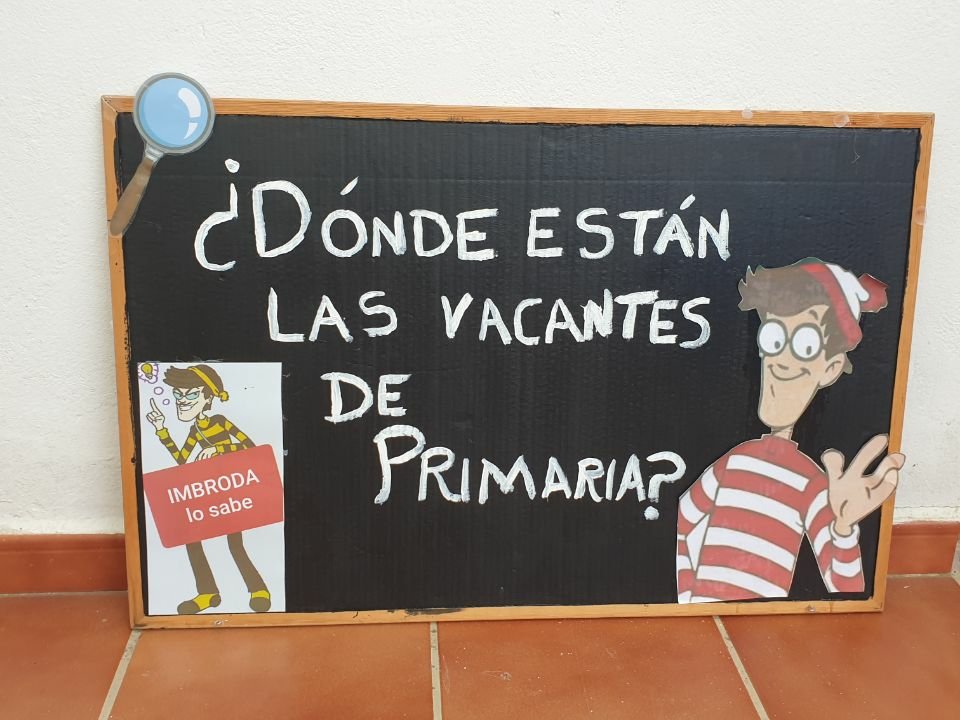 ¿DÓNDE ESTÁN
LAS VACANTES
DE
PRIMARIA?
IMBRODA
lo sabe